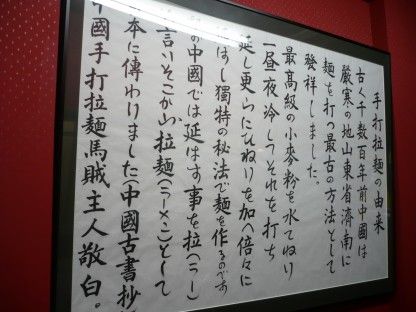 手打拉麺の由来
古く千数百年前中國は
嚴寒の地山東省濟南に
麺を打つ最古の方法として
發祥しました。
最高級の小麥粉を水でねり
一昼夜冷してそれを打ち
延し更らにひねりを加へ倍々に
ばし獨特の秘法で麺を作るのです
の中國では延はす事を拉(ラー)
言いそこから拉麺(ラーメン)として
本に傳わりました(中國古書抄
國手打拉麺馬賊主人敬白。